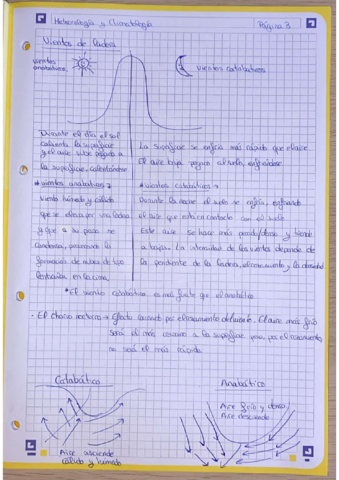 Meteorología y Climatología
Página 3
Vientos de ladera
vientos anabáticos
vientos catabáticos
Durante el día el sol
calienta la superficie
y el aire sube pegado a
la superficie, calentándose
La superficie se enfría más rápido que el aire.
El aire baja pegado al suelo, enfriándose.
* vientos anabáticos →
viento húmedo y cálido
que se eleva por una ladera
y que a su paso se
condensa, provocando la
formación de nubes de tipo
en la cima.
* vientos catabáticos →
Durante la noche el suelo se enfría, enfriando
el aire que está en contacto con el suelo.
Este aire se hace más denso y tiende
a bajar. La intensidad de los vientos depende de
la pendiente de la ladera, el rozamiento y la densidad
* El viento catabático es más fuerte que el anabático
• El chorro nocturno → Efecto causado por el rozamiento del suelo. El aire más frío
será el más cercano a la superficie pero, por el rozamiento
no será el más rápido.
Catabático
Anabático
Aire frío y denso
Aire desciende
Aire asciende
cálido y húmedo